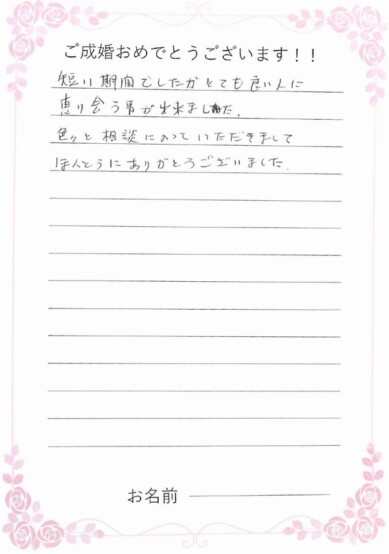 ご成婚おめでとうございます！！
短い期間でしたがとても良い人に
恵り会う事が出来ました。
色々と相談にのっていただきまして
ほんとうにありがとうございました。
お名前